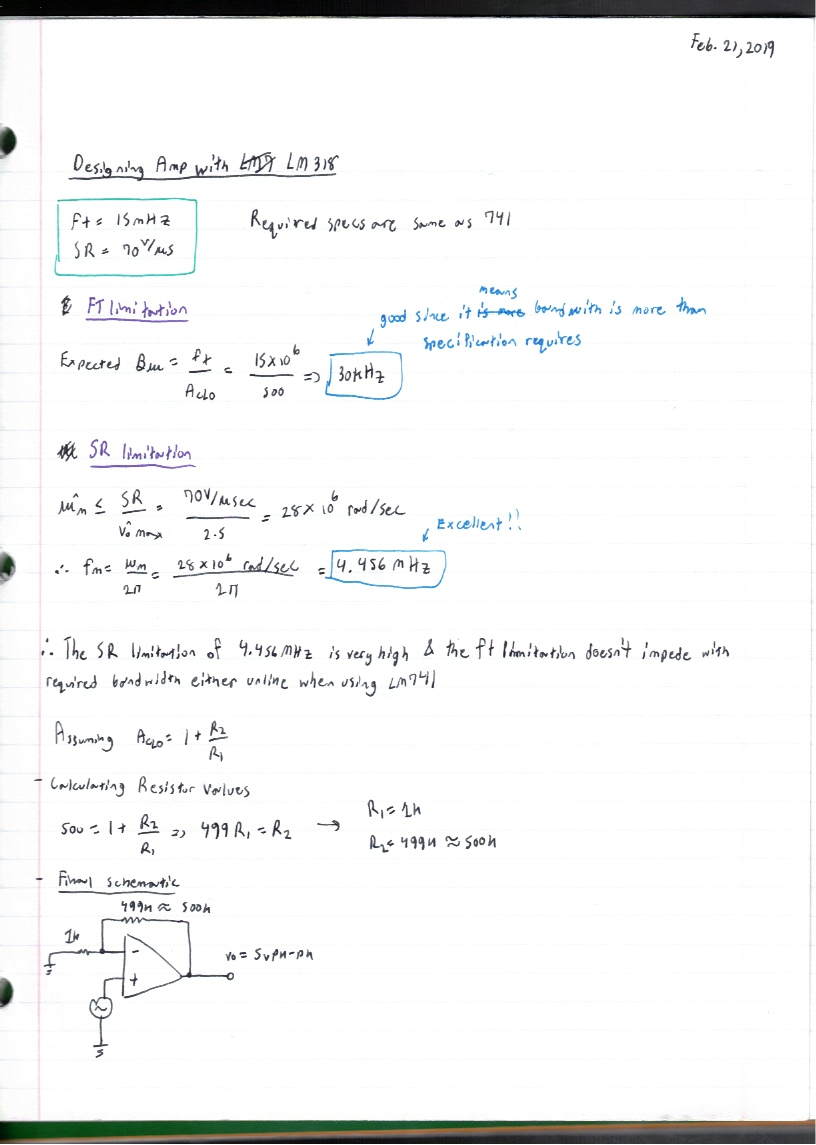 Feb. 21, 2019
Designing Amp with LM318
Ft = 15mHz
SR = 70 V/μs
Required specs are same as 741
FT limitation
means
good since it is more bandwith is more than
specification requires
Expected Bw = ft/AcLo = 15x10^6/500 => 30kHz
SR limitation
ŵm ≤ SR/v̂o max = 70V/μsec/2.5 = 28 x 10^6 rad/sec
Excellent!!
∴ fm = wm/2π = 28 x 10^6 rad/sec/2π = 4.456 mHz
∴ The SR limitation of 4.456MHz is very high & the ft limitation doesn't impede with
required bandwidth either unline when using LM741
Assuming AcLo = 1 + R2/R1
- Calculating Resistor Values
500 = 1 + R2/R1 => 499R1 = R2 →
R1 = 1k
R2 = 499k ≈ 500k
- Final schematic
499k ≈ 500k
1k
-
+
vo = 5vpk-pk